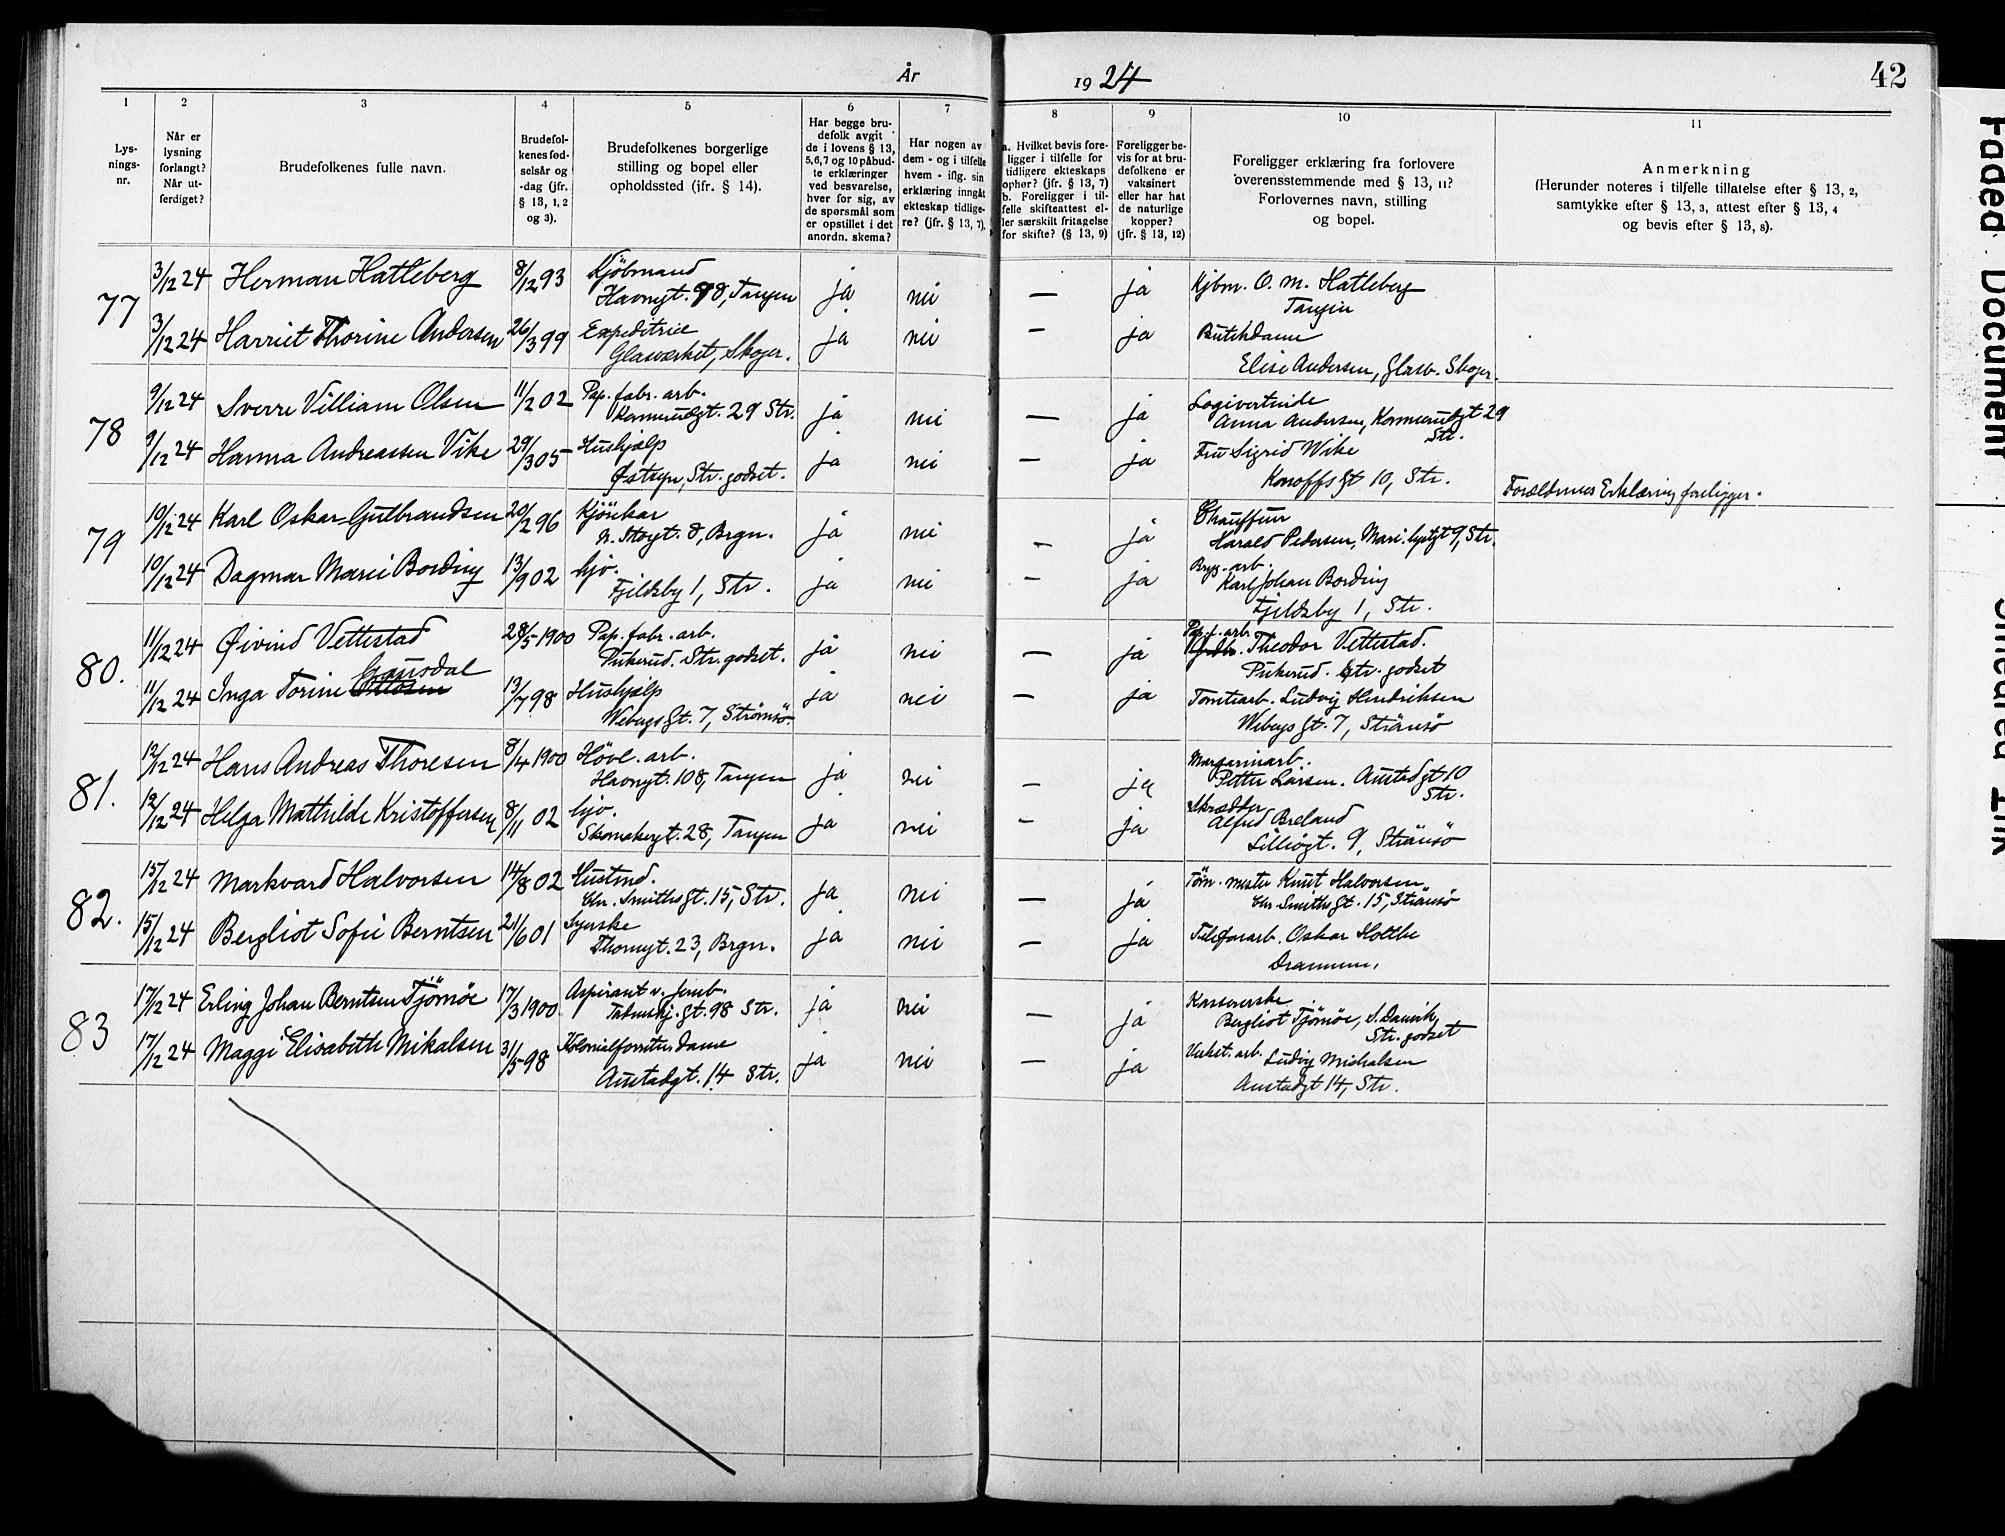 År 1924
42
1 2 3 4 5 6 7 8 9 10 11
Lysningsnr.
Når er lysning forlangt? Når utferdiget?
Brudefolkenes fulle navn.
Brudefolkenes fødselsår og -dag (jfr. § 13, 1, 2 og 3).
Brudefolkenes borgerlige stilling og bopel eller opholdssted (ifr. § 14).
Har begge brudefolk avgit de i lovens § 13, 5,6,7 og 10 påbudte erklæringer ved besvarelse, hver for sig, av de spørsmål som er opstillet i det anordn. skema?
Har nogen av dem - og i tilfelle hvem - iflg. sin erklæring inngått ekteskap tidligere? (jfr. § 13, 7).
a. Hvilket bevis foreligger i tilfelle for tidligere ekteskaps ophør? (jfr. § 13, 7) b. Foreligger i tilfelle skifteattest eller særskilt fritagelse for skifte? (§ 13, 9)
Foreligger bevis for at brudefolkene er vaksinert eller har hat de naturlige kopper? (jfr. § 13, 12)
Foreligger erklæring fra forlovere overensstemmende med § 13, 11? Forlovernes navn, stilling og bopel.
Anmerkning (Herunder noteres i tilfelle tillatelse efter § 13, 2, samtykke efter § 13, 3, attest efter § 13, 4 og bevis efter § 13, 8).
77
3/12 24 Herman Hatleberg 8/12 93 Kjöbmand ja nei — ja Kjbm. O. M. Hatleberg
Havngt. 98, Tangen Tangen
3/12 24 Harriet Thorine Andersen 26/3 99 Expeditrice ja nei — ja Butikdame
Glasværket, Skoger. Elise Andersen, Glasv. Skoger.
78
9/12 24 Sverre Villiam Olsen 11/2 02 Pap. fabr. arb. ja nei — ja Logivertinde
Konnerudgt. 29 Str. Anna Andersen, Konnerudgt 29 Str.
9/12 24 Hanna Andreassen Vike 29/3 05 Hushjælp ja nei — ja Fru Sigrid Wike
Østbyn, Str. godset. Konoffs Gt 10, Str. Forældrenes Erklæring foreligger.
79
10/12 24 Karl Oskar Gulbrandsen 20/2 96 Kjörekar ja nei — ja Chauffeur
N. Storgt. 8, Brgn. Harald Pedersen, Mari. lystgt 9, Str.
10/12 24 Dagmar Marie Bording 13/9 02 hjv. ja nei — ja Bryg. arb.
Fjeldsby 1, Str. Karl Johan Bording
Fjeldsby 1, Str.
80.
11/12 24 Øivind Vettestad 28/5 1900 Pap. fabr. arb. ja nei — ja Pap. f. arb. Theodor Vettestad.
Pukerud. Str. godset. Pukerud. Str. godset
11/12 24 Inga Torine Gausdal 13/7 98 Hushjælp ja nei — ja Tomtearb. Ludvig Hendriksen
Webergs Gt. 7, Strømsö. Webergs Gt. 7, Strömsö
81.
12/12 24 Hans Andreas Thoresen 8/4 1900 Hövl. arb. ja nei — ja Margarinarb.
Havngt. 108, Tangen Petter Larsen. Austadgt 10 Str.
12/12 24 Helga Mathilde Kristoffersen 8/11 02 hjv. ja nei — ja Skrædder
Skomakergt. 28, Tangen Alfred Breland
Lilliögt. 9, Strömsö
82.
15/12 24 Markvard Halvorsen 14/8 02 Hustmd. ja nei — ja Töm. mester Knut Halvorsen
Chr. Smiths Gt. 15, Str. Chr Smiths Gt. 15, Strömsö
15/12 24 Bergliot Sofie Berntsen 21/6 01 Syerske ja nei — ja Telefonarb. Oskar Holtbe
Thomegt. 23, Brgn. Drammen.
83
17/12 24 Erling Johan Berntsen Tjömöe 17/3 1900 Aspirant v. Jernb. ja nei — ja Kassererske
Tolbuskj. Gt. 98 Str. Bergliot Tjömöe, S. Danvik, Str. godset
17/12 24 Maggi Elisabeth Mikalsen 31/5 98 Kolonialforretn. Dame ja nei — ja Verkst. arb. Ludvig Michalsen
Austadgt. 14 Str. Austadgt 14, Str.
Faded Document
Smeared Ink